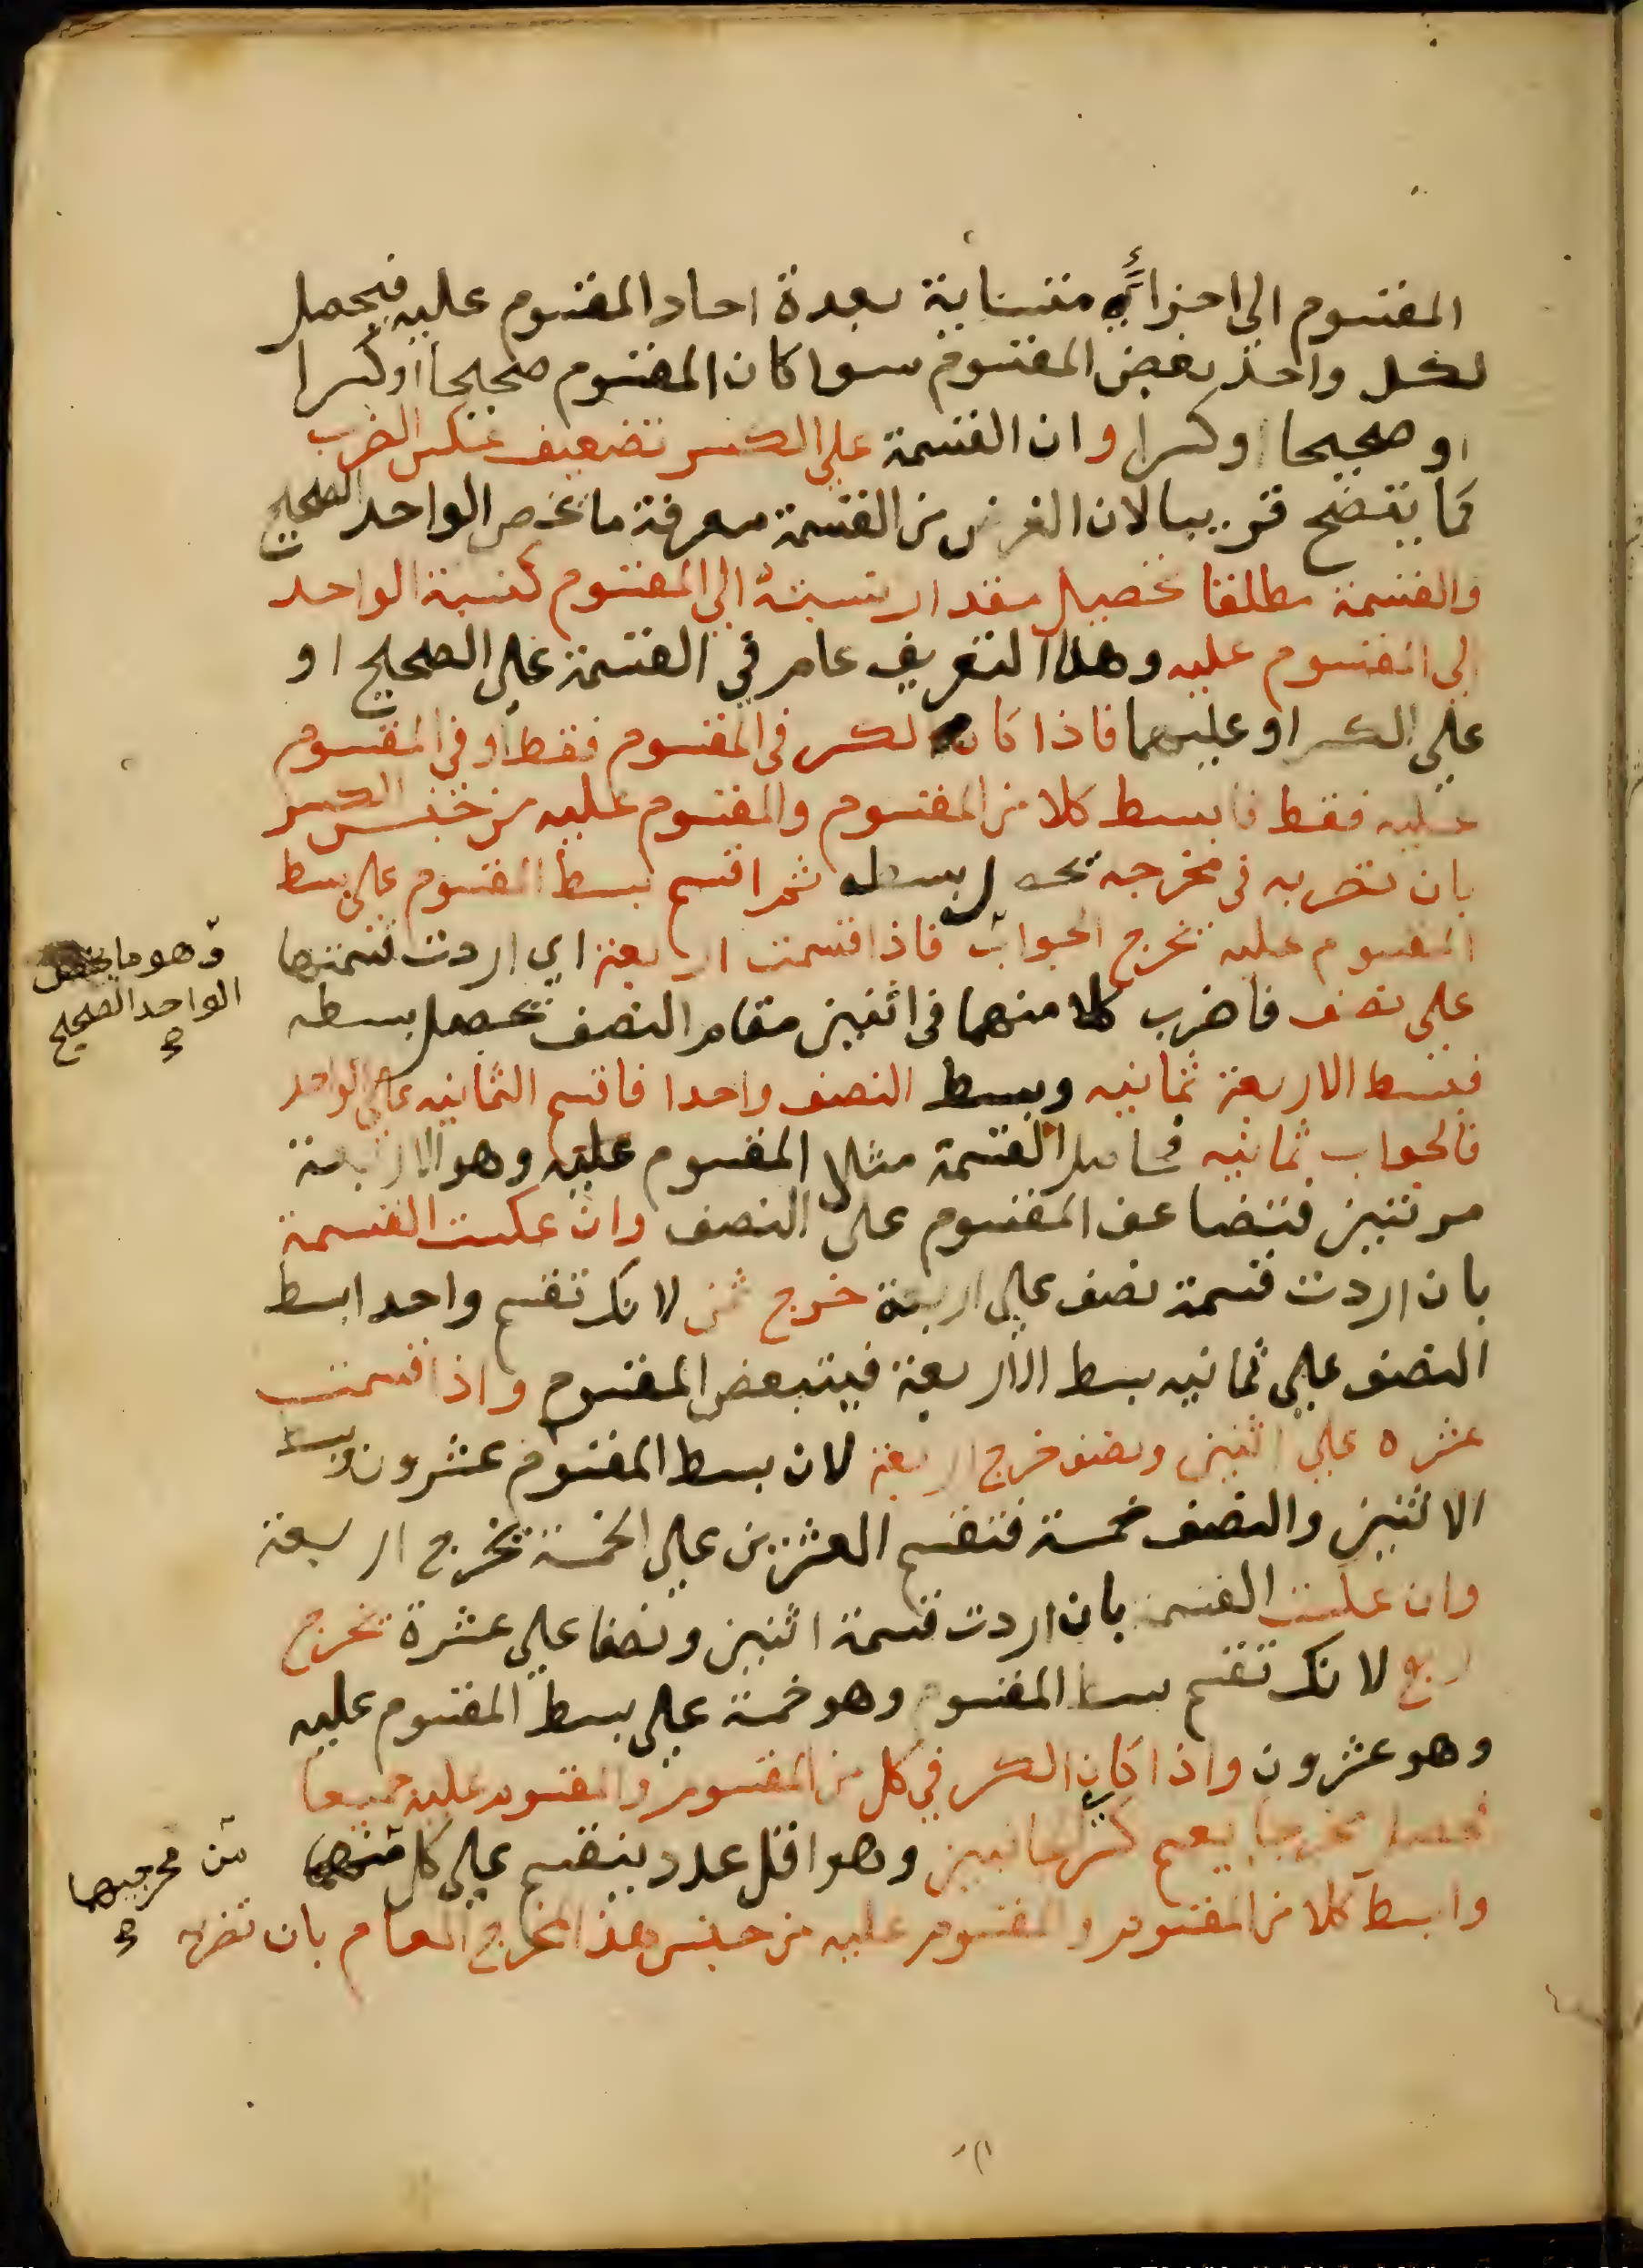 المقسوم الى اجزاء متساية بعدة احاد المقسوم عليه فيحصل
لكل واحد بعض المقسوم سوا كان المقسوم صحيحا او كسرا
او صحيحا او كسرا وان القسمة على الكسر تضعيف عكس الضرب
كما يتضح قريبا لان الغرض من القسمة معرفة ما يخص الواحد الصحيح
والقسمة مطلقا تحصيل مقدار نسبته الى المقسوم كنسبة الواحد
الى المقسوم عليه وهذا التعريف عام في القسمة على الصحيح او
على الكسر او عليهما فاذا كان الكسر في المقسوم فقط او في المقسوم
عليه فقط فابسط كلا من المقسوم والمقسوم عليه من جنس الكسر
بان تضربه في مخرجه تحصل بسطه ثم اقسم بسط المقسوم على بسط
المقسوم عليه يخرج الجواب فاذا قسمت اربعة اي اردت قسمتها
وهو ما يخص
الواحد الصحيح
على نصف فاضرب كلا منهما في اثنين مقام النصف يحصل بسطه
فبسط الاربعة ثمانيه وبسط النصف واحدا فاقسم الثمانيه على الواحد
فالجواب ثمانيه فحاصل القسمة مثل المقسوم عليه وهو الاربعة
مرتين فتضاعف المقسوم على النصف وان عكست القسمة
بان اردت قسمة نصف على اربعة خرج ثمن لانك تقسم واحدا بسط
النصف على ثمانيه بسط الاربعة فيتبعض المقسوم واذا قسمت
عشره على اثنين ونصف خرج اربعة لان بسط المقسوم عشرون وبسط
الاثنين والنصف خمسة فتقسم العشرين على الخمسة يخرج اربعة
وان عكست القسمة بان اردت قسمة اثنين ونصفا على عشرة يخرج
ربع لانك تقسم بسط المقسوم وهو خمسة على بسط المقسوم عليه
وهو عشرون واذا كان الكسر في كل من المقسوم والمقسوم عليه جميعا
فحصل مخرجا يعم كسر الجانبين وهو اقل عدد ينقسم على كل
من مخرجيهما
وابسط كلا من المقسوم والمقسوم عليه من جنس هذا المخرج العام بان تضربه